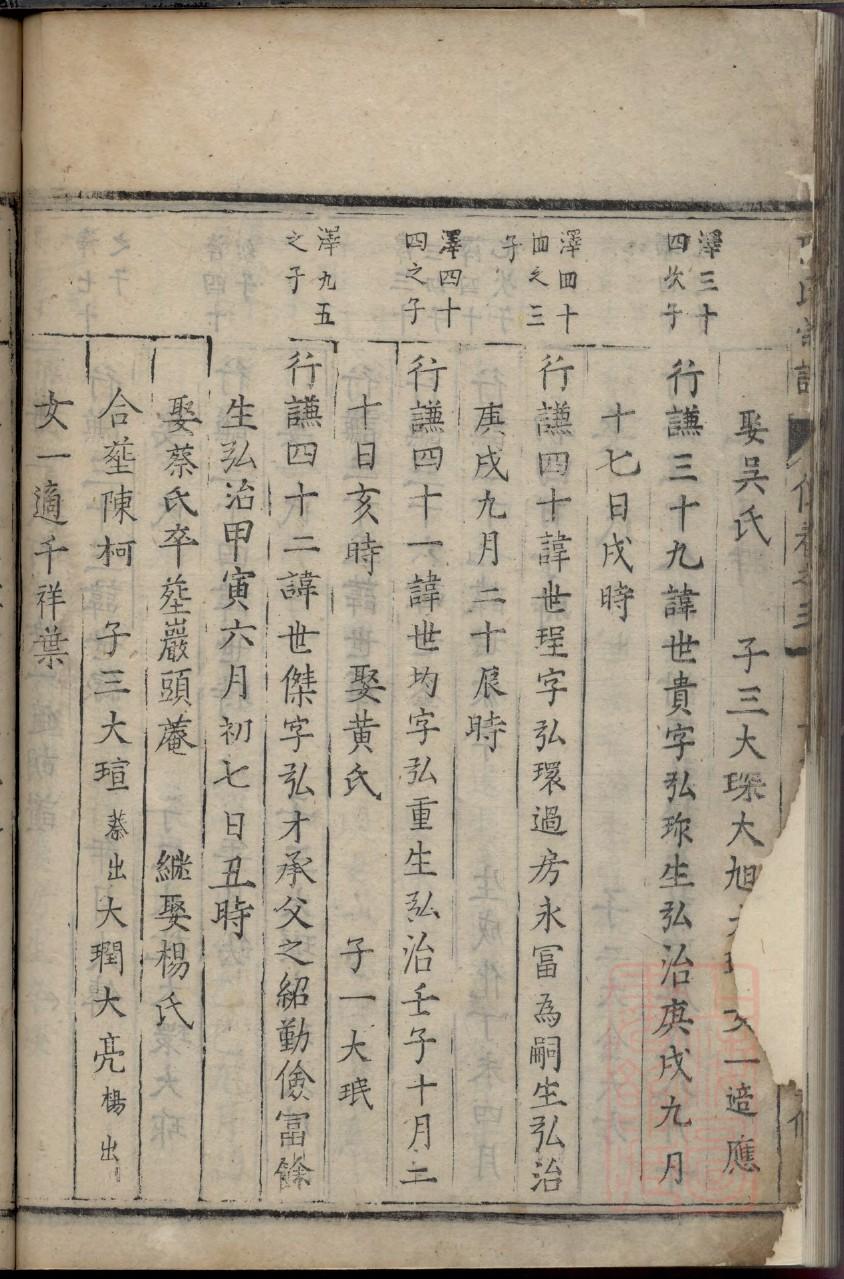 娶吴氏　子三大琛大旭　一適應
澤三十四次子
行謙三十九諱世貴字弘珎生弘治庚戌九月
十七日戌時
澤四十四之三子
行謙四十諱世珵字弘環過房永冨為嗣生弘治
庚戌九月二十辰時
澤四十四之子
行謙四十一諱世均字弘重生弘治壬子十月二
十日亥時　娶黄氏　子一大珉
澤九五之子
行謙四十二諱世傑字弘才承父之紹勤儉冨餘
生弘治甲寅六月初七日丑時
娶蔡氏卒塟巖頭菴　継娶楊氏
合塟陳柯　子三大瑄蔡出大㻞大亮楊出
女一適千祥葉